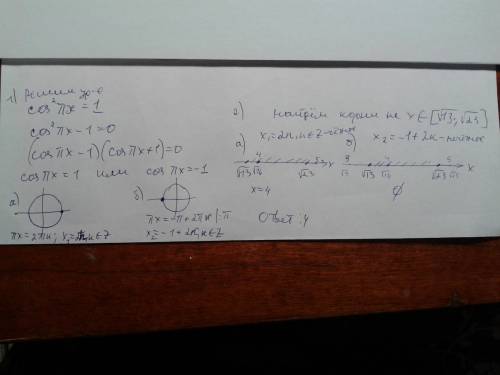 1) Решим ур-е
cos²πx = 1
cos²πx - 1 = 0
(cosπx - 1)(cosπx + 1) = 0
cosπx = 1 или cosπx = -1
а)
πx = 2πк; к ∈ Z
б)
πx = -π + 2πк |:π
x₂ = -1 + 2к, к ∈ Z
2) Найдём корни на x ∈ [√13; √23]
а) x₁ = 2к, к ∈ Z - чётное
4 5 x
√13 √23
x = 4
б) x₂ = -1 + 2к - нечётное
3 4 5 x
√13 √23
∅
Ответ: 4